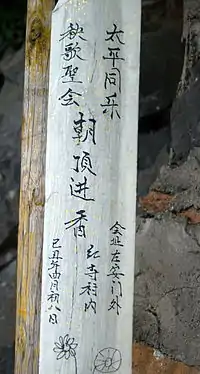 太平同乐
秧歌聖会
朝顶进香
会址左安门外
弘寺村内
己丑年四月初八日